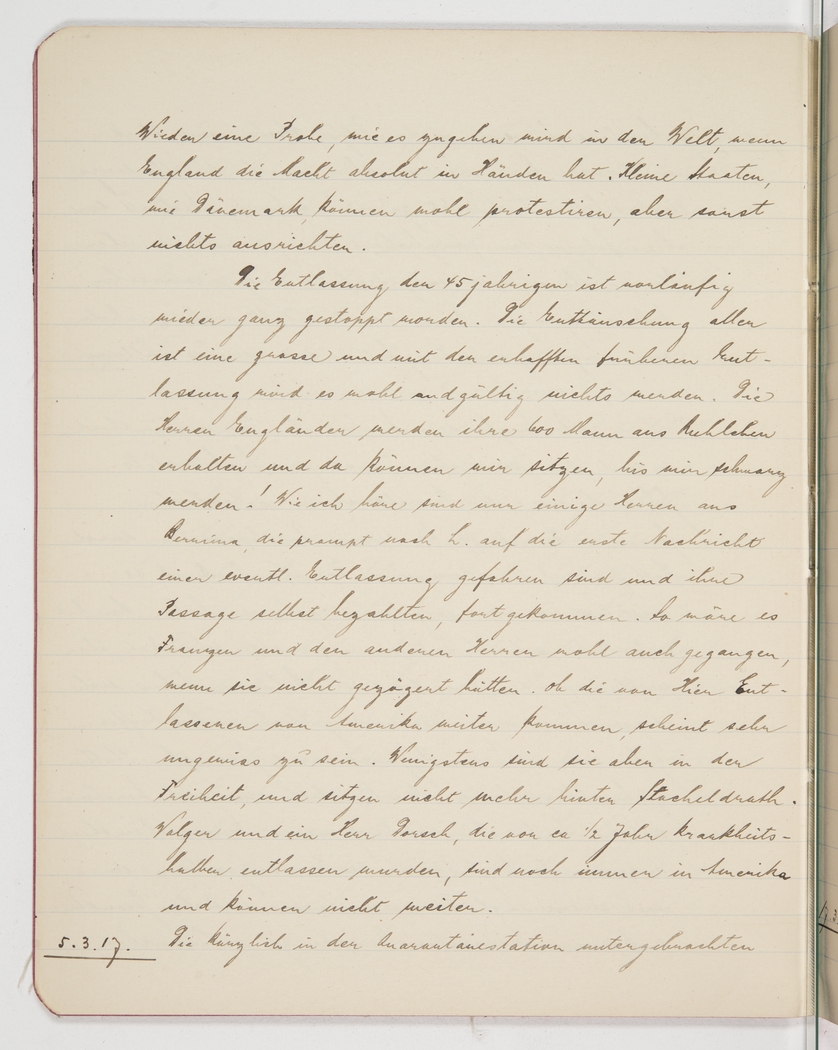 Wieder eine Probe, wie es zugehen wird in der Welt, wenn
England die Macht absolut in Händen hat. Kleine Staaten,
wie Dänemark, können wohl protestiren, aber sonst
nichts ausrichten.
Die Entlassung der 45 jährigen ist vorläufig
wieder ganz gestoppt worden. Die Enttäuschung aller
ist eine grosse und mit der erhofften früheren Ent-
lassung wird es wohl endgültig nichts werden. Die
Herren Engländer werden ihre 600 Mann aus Ruhleben
erhalten und da können wir sitzen, bis wir schwarz
werden! Wie ich höre sind nur einige Herren aus
Bermuda, die prompt nach H. auf die erste Nachricht
einer eventl. Entlassung gefahren sind und ihre
Passage selbst bezahlten, fortgekommen. So wäre es
Franzen und den anderen Herren wohl auch gegangen,
wenn sie nicht gezögert hätten. Ob die von Hier Ent-
lassenen von Amerika weiter kommen, scheint sehr
ungewiss zu sein. Wenigstens sind sie aber in der
Freiheit, und sitzen nicht mehr hinter Stacheldrath.
Volger und ein Herr Dorsch, die vor ca 1/2 Jahr krankheits-
halber entlassen wurden, sind noch immer in Amerika
und können nicht weiter.
5.3.17. Die kürzlich in der Quarantänestation untergebrachten